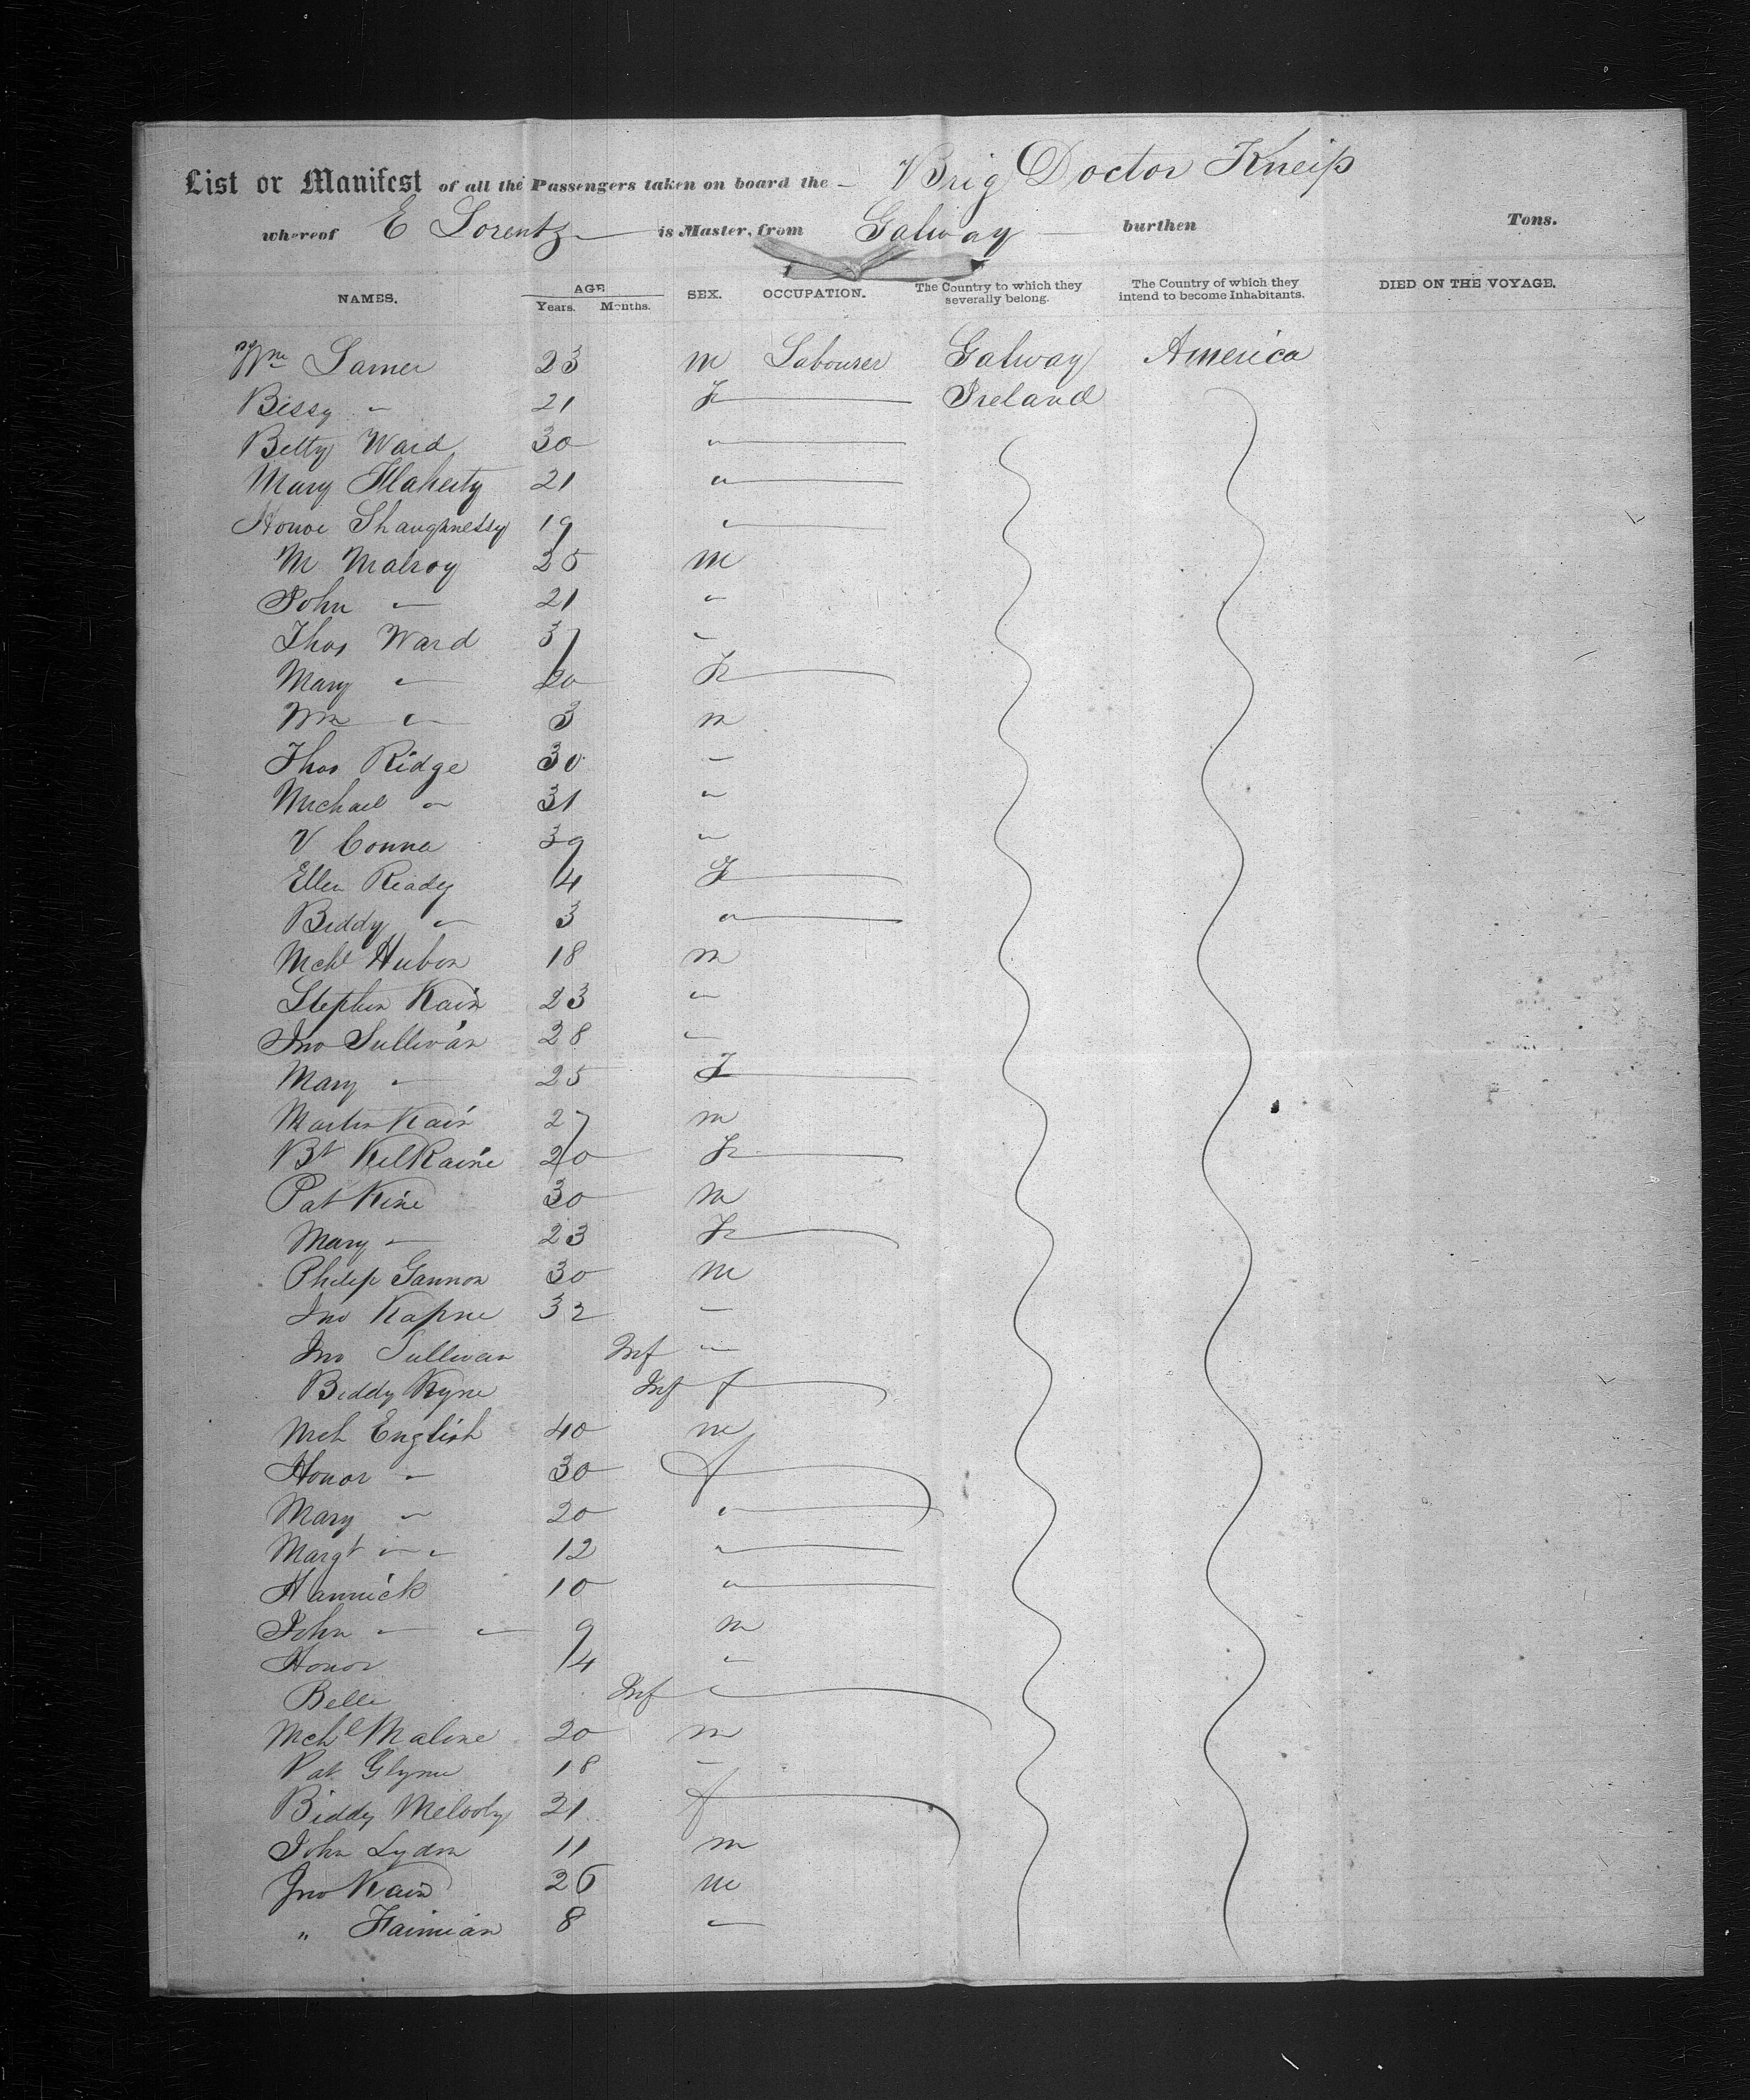 List or Manifest of all the Passengers taken on board the – Brig Doctor Kneip
whereof E Lorentz is Master, from Galway burthen Tons.
NAMES. AGE Years. Months. SEX. OCCUPATION. The Country to which they severally belong. The Country of which they intend to become Inhabitants. DIED ON THE VOYAGE.
Wm Larner 23 m Labourer Galway America
Bissy " 21 F Ireland
Betty Ward 30 "
Mary Flaherty 21 "
Shaughnessy 19 "
M Malroy 25 m
John " 21 "
Thos Ward 37 "
Mary " 20 F
Wm " 3 m
Thos Ridge 30 "
Michael " 31 "
V Conna 39 "
Ellen Ready 14 F
Biddy " 3 "
Mchl Hubon 18 m
Stephen Kain 23 "
Jno Sullivan 28 "
Mary " 25 F
Martin Kain 27 m
Bt KilRaine 20 F
Pat Kine 30 m
Mary " 23 F
Philip Gannon 30 m
Jno 32 "
Jno Sullivan Inf "
Biddy Kyne Inf f
Mch English 40 m
Honor " 30 f
Mary " 20 "
Margt " " 12 "
Hannick 10 "
John " " 9 m
Honor 14 "
Belle Inf "
Mchl Malone 20 m
Pat Glynn 18 "
Biddy 21 f
John Lydon 11 m
Jno Kain 26 m
" 8 "